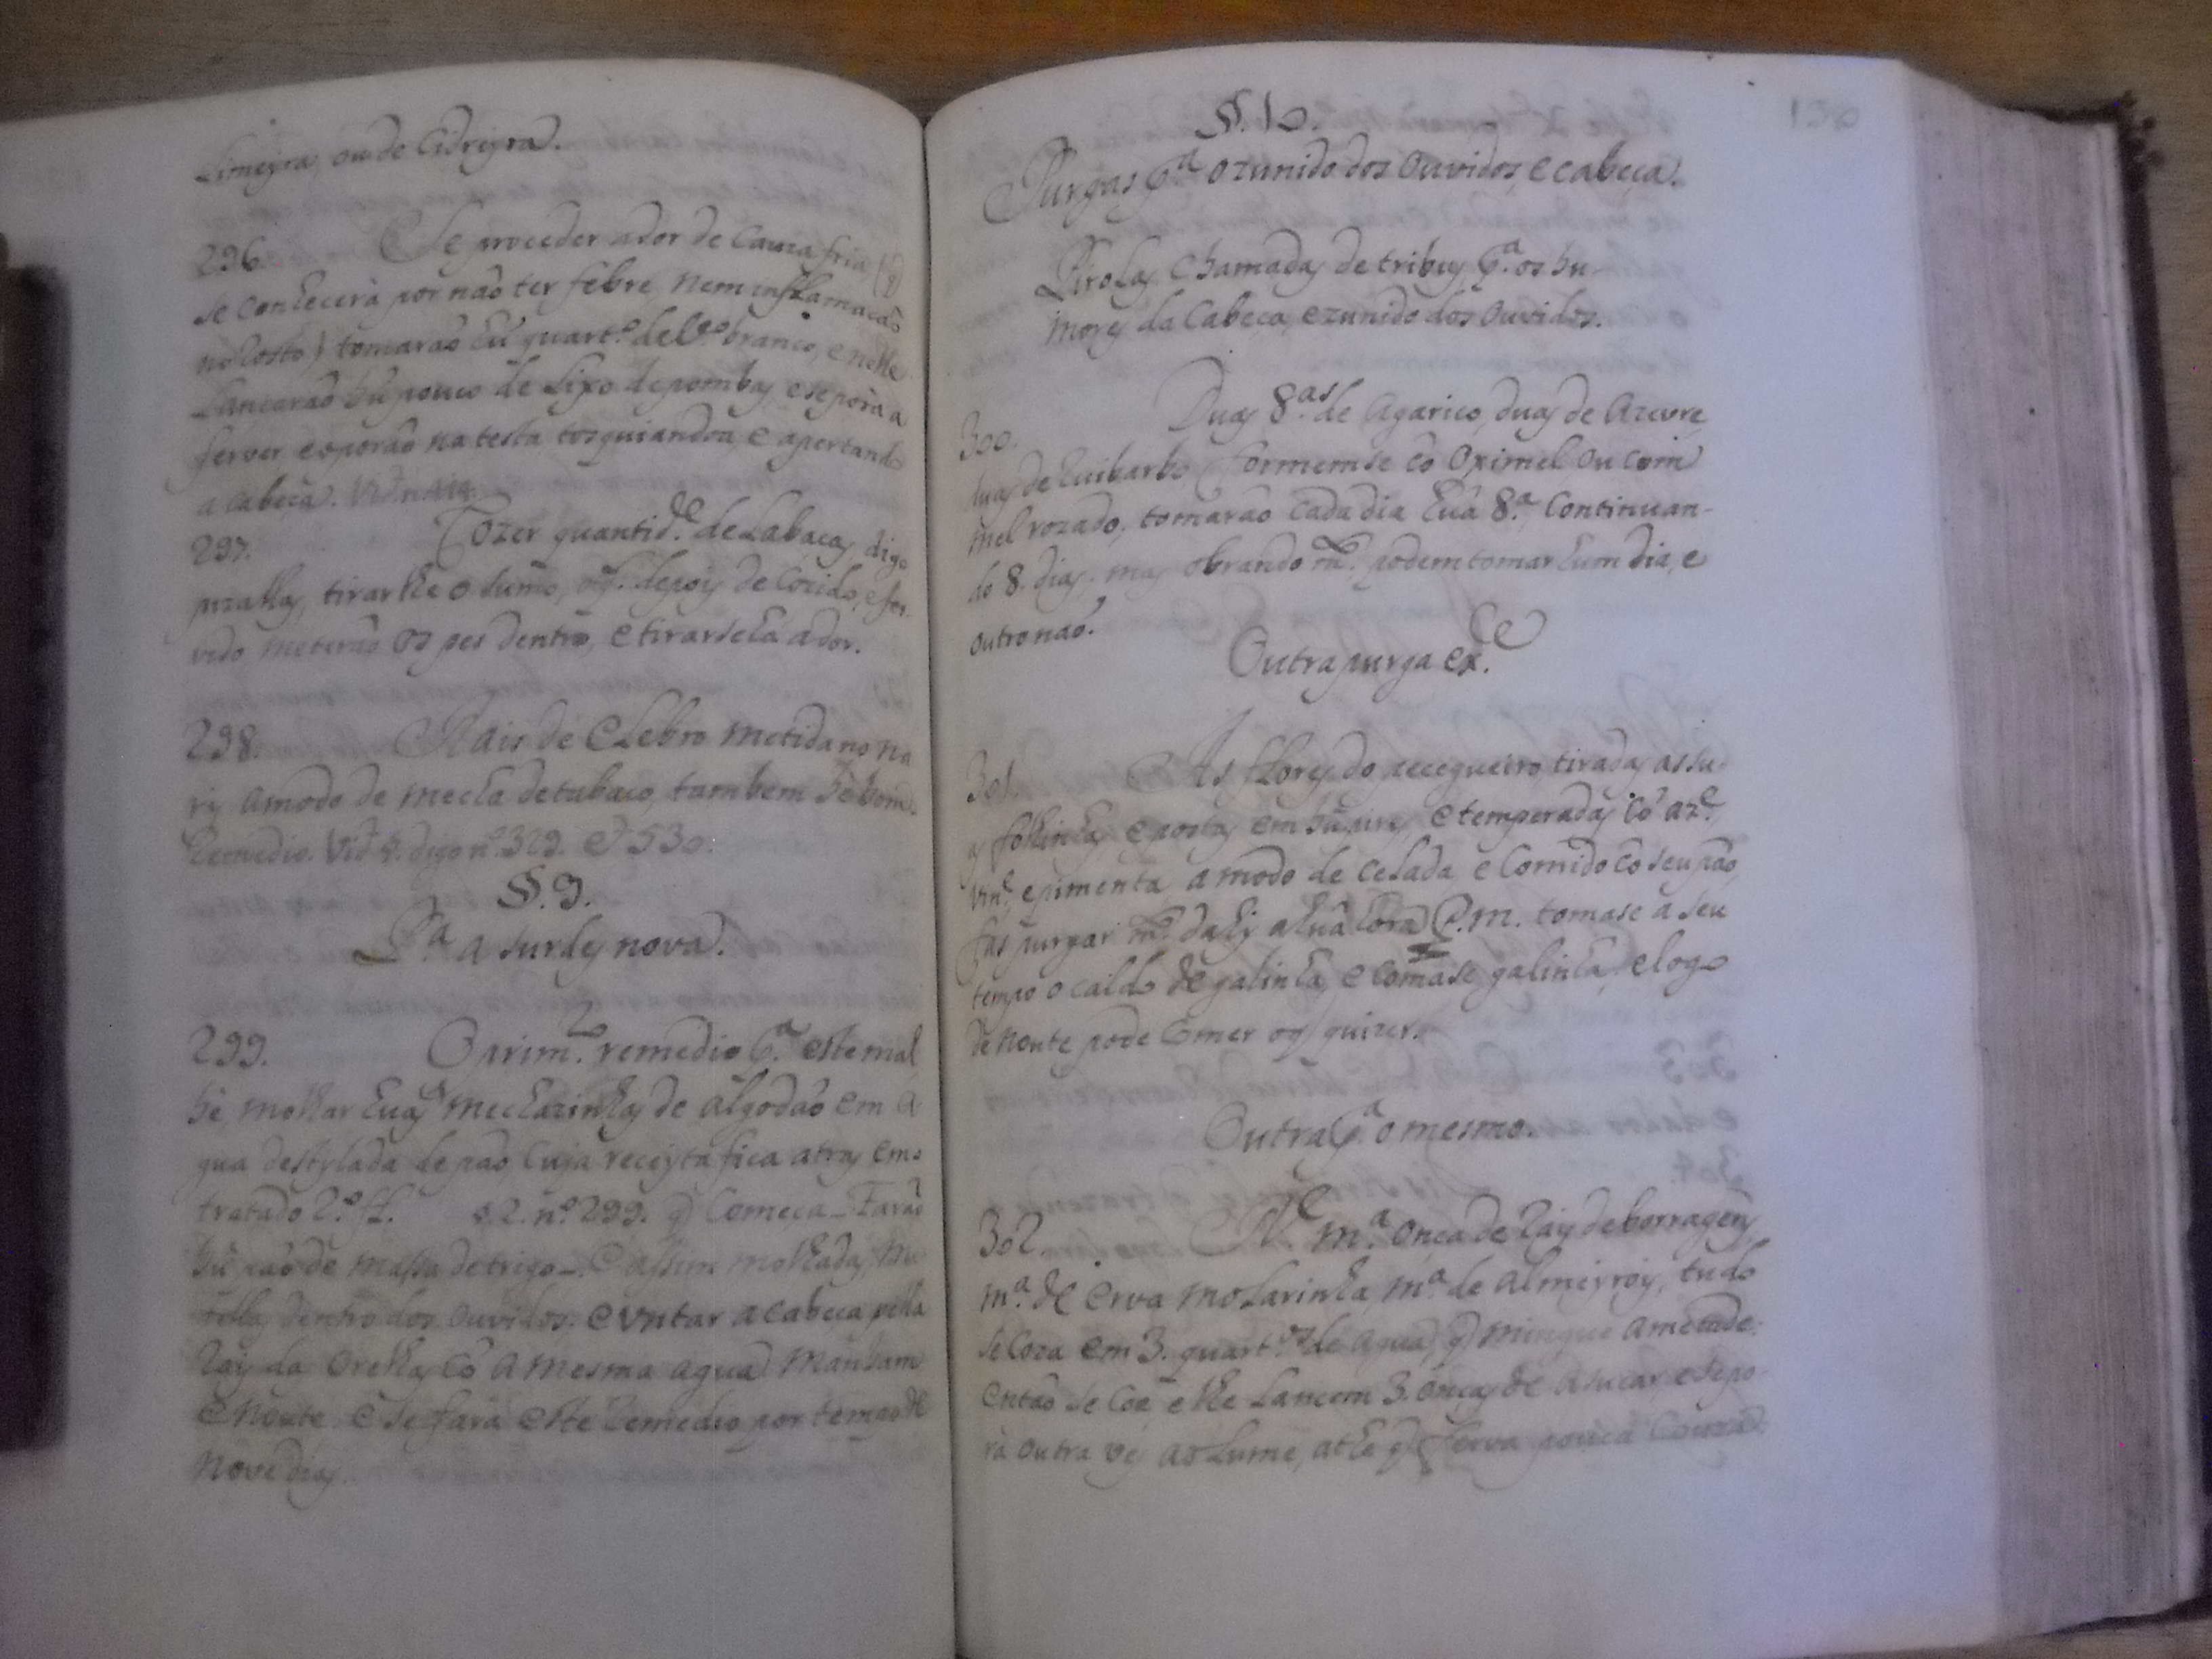 Limeyra, ou de Cidreyra.
296. Se proceder a dor de Cauza fria (q
se Conhecerà por não ter febre, nem inflamacão
no Rosto) tomarão hũ quart.º de V.º branco, e nelle
Lancarão hũ pouco de Lixo de pombas, e se porà a
ferver e o porão na testa tosquiandoa, e apertando
a cabeça. Vid. n.
297. Cozer quantid.e de Labaças, digo
pizallas, tirarlhe o sumo, depois de Cozido, e fer-
vido meterão os pes dentro, e tirarseha a dor.
298. Rais de Elebro metida no na
ris a modo de mecha de tabaco, tambem hè bom
Remedio. Vid. §. digo nº. 329. e 530.
§. 9.
P.a a surdes nova.
299. O prim.ro remedio p.a este mal
hè molhar huas mechazinhas de algodão em a-
gua destylada de pão, Cuja receyta fica atras em o
tratado 2.º f. §. 2. nº. 299. q Comeca _ Farão
hũ pão de massa de trigo _. E assim molhadas, me
tellas dentro dos ouvidos. e untar a cabeça pella
Rais da Orelha Cõ a mesma agua Manham
e Noute e se fara este Remedio por tempo de
Nove dias.
130
§. 10.
Purgas p.a o zunido dos Ouvidos, e cabeça.
Pirolas Chamadas de tribus p.a os hu-
mores da Cabeça, e zunido dos Ouvidos.
300. Duas 8.as de Agarico, duas de Azevre,
duas de Ruibarbo formemse Cõ Oximel, ou Com
mel rozado, tomarão Cada dia huâ 8.a, Continuan-
do 8. dias, mas obrando m.to podem tomar hum dia, e
outro não.
Outra purga ex.te
301. As flores do pecegueiro, tiradas as su-
as folhinhas, e postas em hũ pires, e temperadas Cõ az.e,
vin.e, e pimenta a modo de Celada, e Comido Cõ seu pão,
fas purgar m.to dahy a huâ hora P.M. tomase a seu
tempo o caldo de galinha, e Comase galinha, e logo
de Noute pode Comer o q quizer.
Outra p.a o mesmo.
302. R.e m.a Onca de Rais de borragens,
m.a de Erva molarinha, m.a de Almeyrois, tudo
se Coza em 3. quart.os de Agua, q mingue Ametade:
Então se Coe, e lhe Lancem 3. Onças de Asucar e se po-
rà outra ves ao Lume, athe q ferva pouca Couza